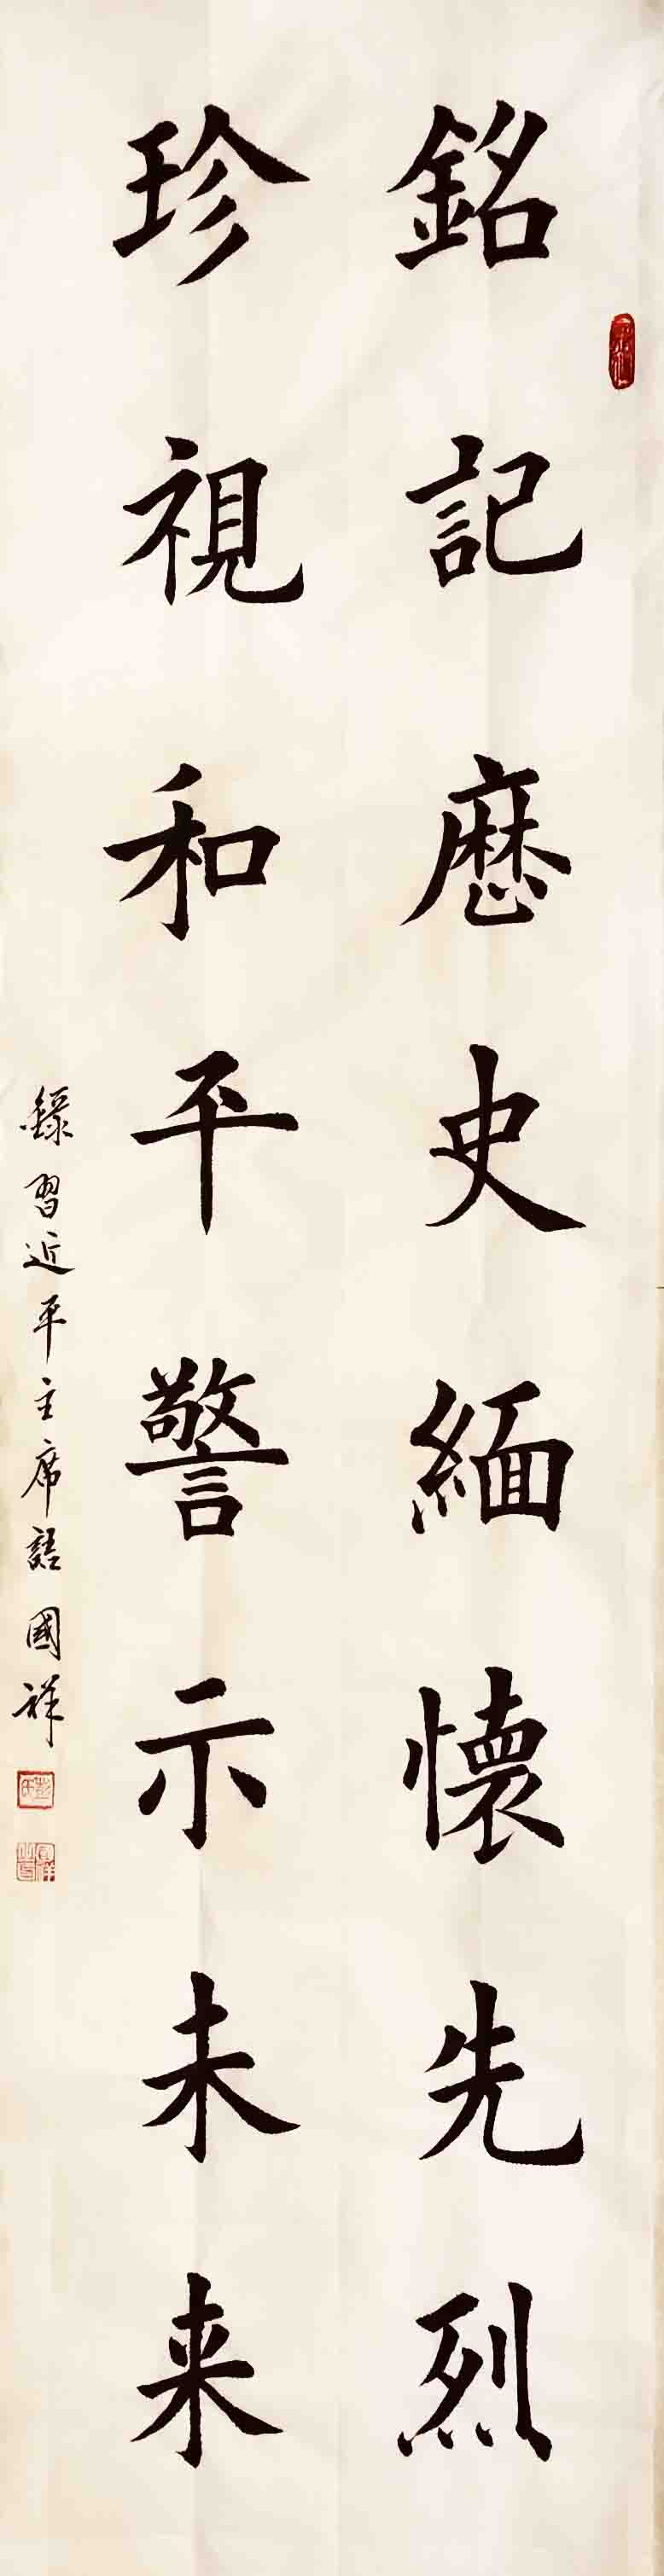 銘記歴史緬懷先烈
珍視和平警示未来
録習近平主席語 國祥